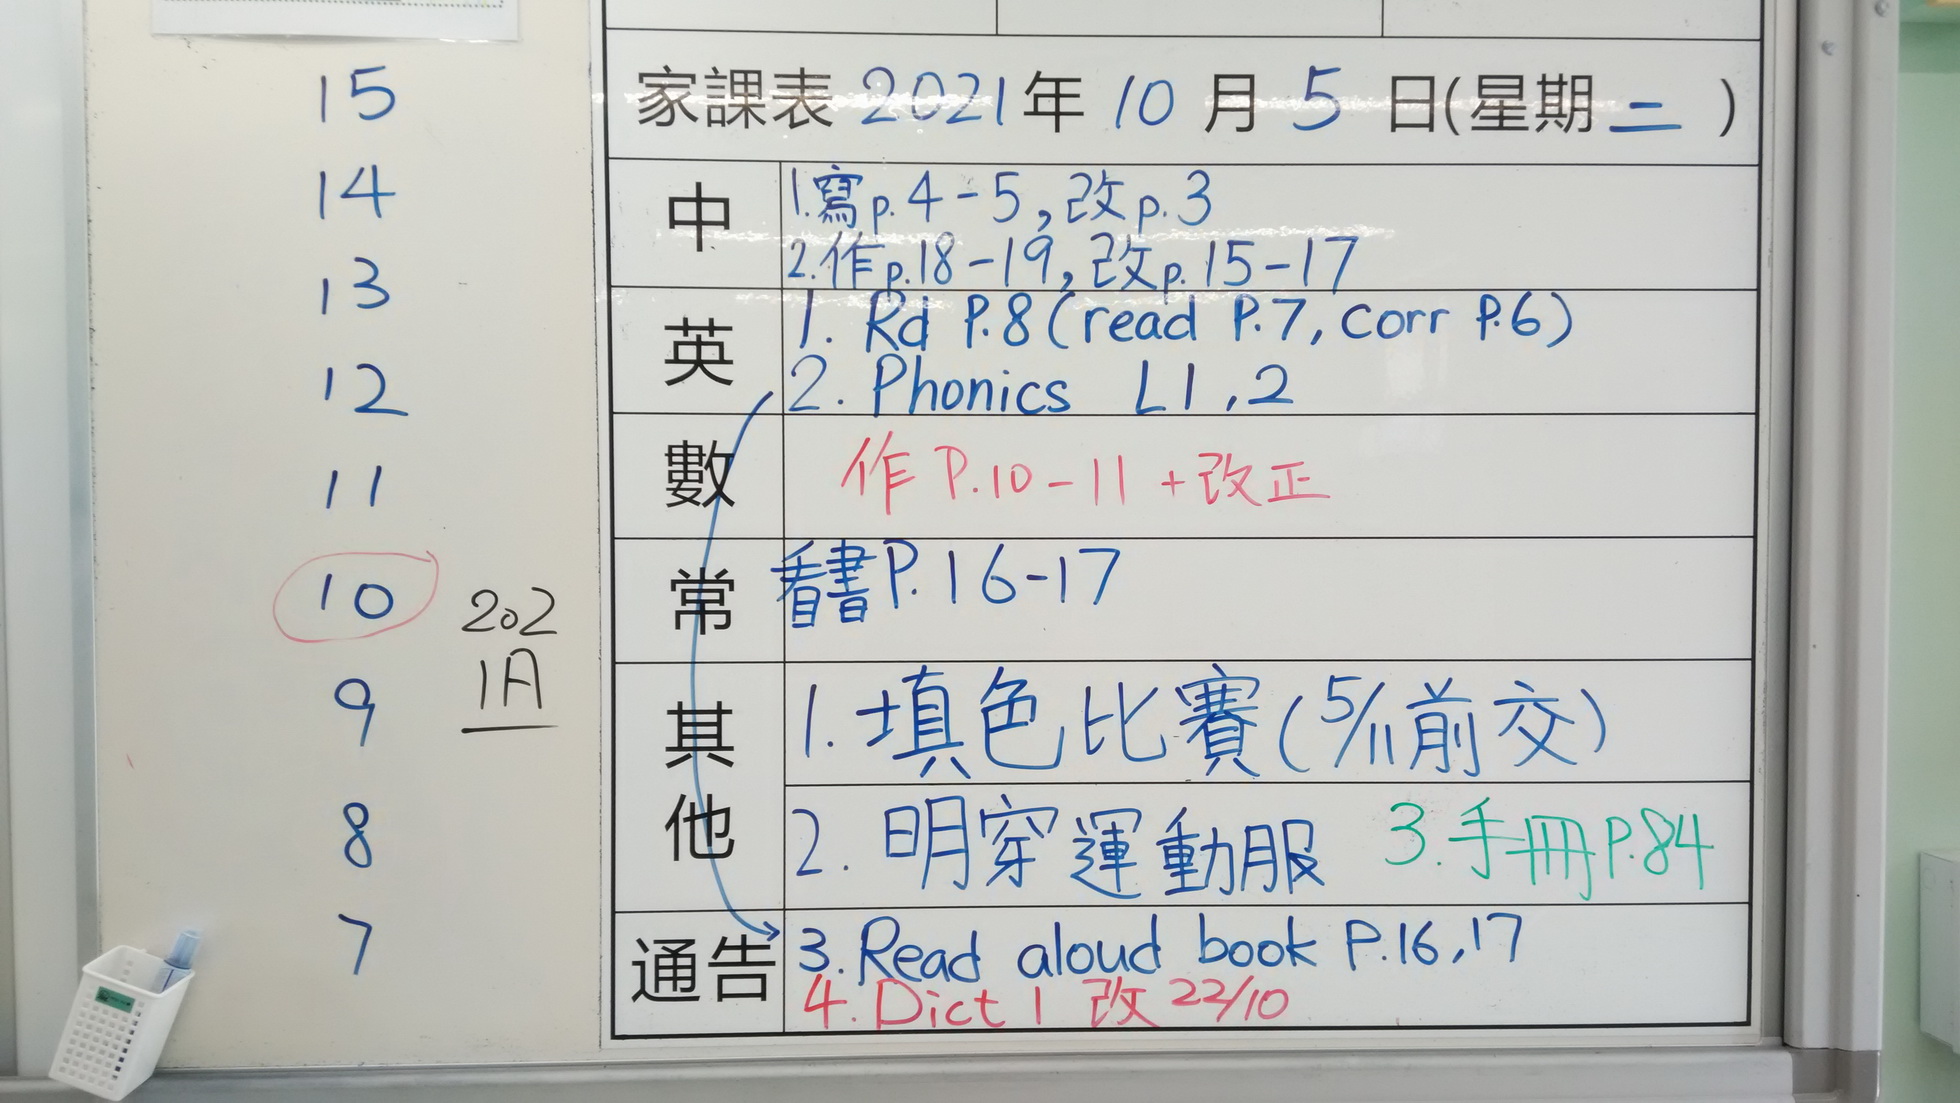 15
14
13
12
11
10
202
1A
9
8
7
家課表 2021年 10 月 5 日(星期二)
中
1.寫p.4-5,改p.3
2.作p.18-19,改p.15-17
英
1. Rd P.8(read P.7, corr P.6)
2. Phonics L1,2
數
作 P.10-11 +改正
常
看書P.16-17
其他
1.填色比賽(5/11前交)
2.明穿運動服 3.手冊P.84
通告
3.Read aloud book P.16,17
4.Dict 1 改 22/10